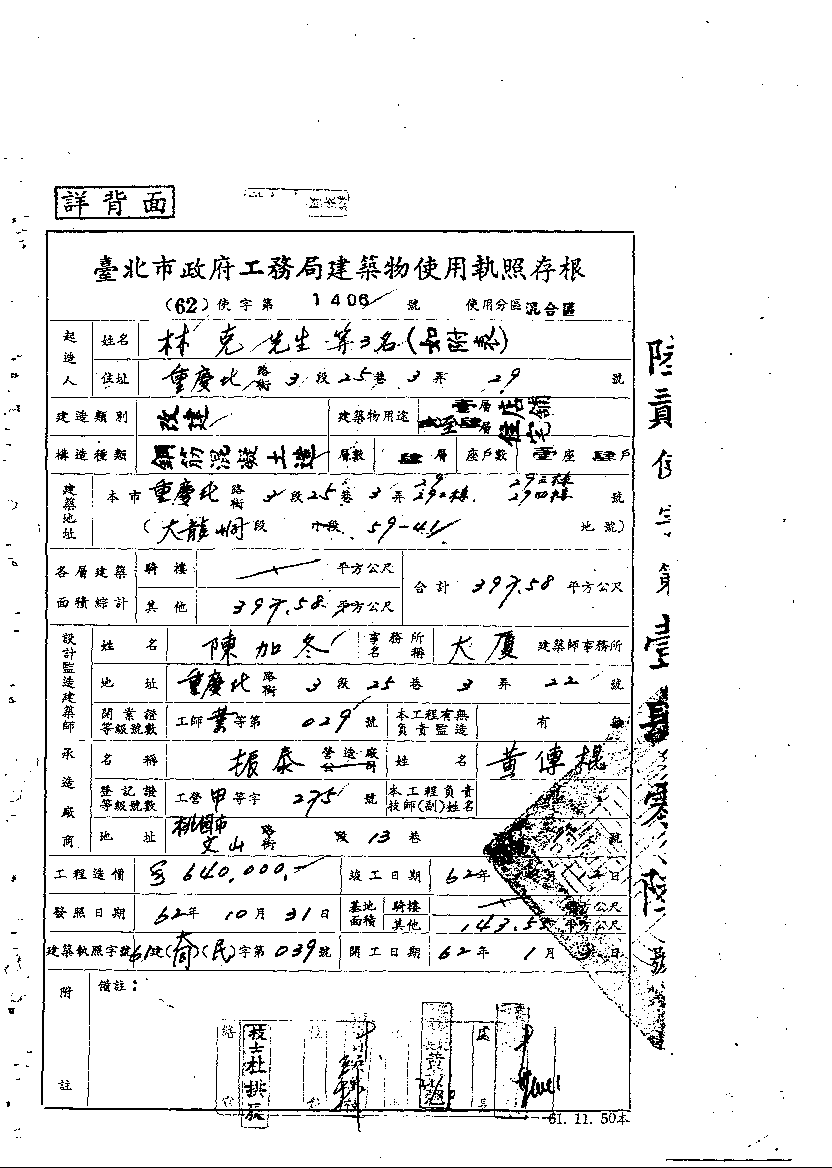 詳背面
臺北市政府工務局建築物使用執照存根
(62)使字第 1406 號 使用分區 混合區
起造人 姓名 林克先生等3名(如附表)
住址 重慶北路街 3 段 25 巷 3 弄 29 號
建造類別 改建 建築物用途 層店舖 層住宅
構造種類 鋼筋混凝土造 層數 肆 層 座戶數 壹 座 肆 戶
建築地址 本市 重慶北路街 3 段 25 巷 3 弄 29 292棟 號
(大龍峒段 小段 59-41 地號)
各層建築面積綜計 騎樓 平方公尺 合計 平方公尺
其他 平方公尺
設計監造建築師 姓名 陳加冬 事務所名稱 大厦 建築師事務所
地址 重慶北路街 3 段 25 巷 3 弄 22 號
開業證等級號數 工師 業 等第 029 號 本工程有無負責監造 有
承造廠商 名稱 振泰 營造廠公司 姓名 黃傳棍
登記證等級號數 工營 甲 等字 275 號 本工程負責技師(副)姓名
地址 桃園市文山路街 段 13 巷 號
工程造價 640,000.- 竣工日期 62年 日
發照日期 62年 10月 31日 基地面積 騎樓 平方公尺
其他 143.55 平方公尺
建築執照字號 61建( )(民)字第 039 號 開工日期 62年 1月 日
附註 備註:
61.11.50本
陸貳使字第壹肆零陸號